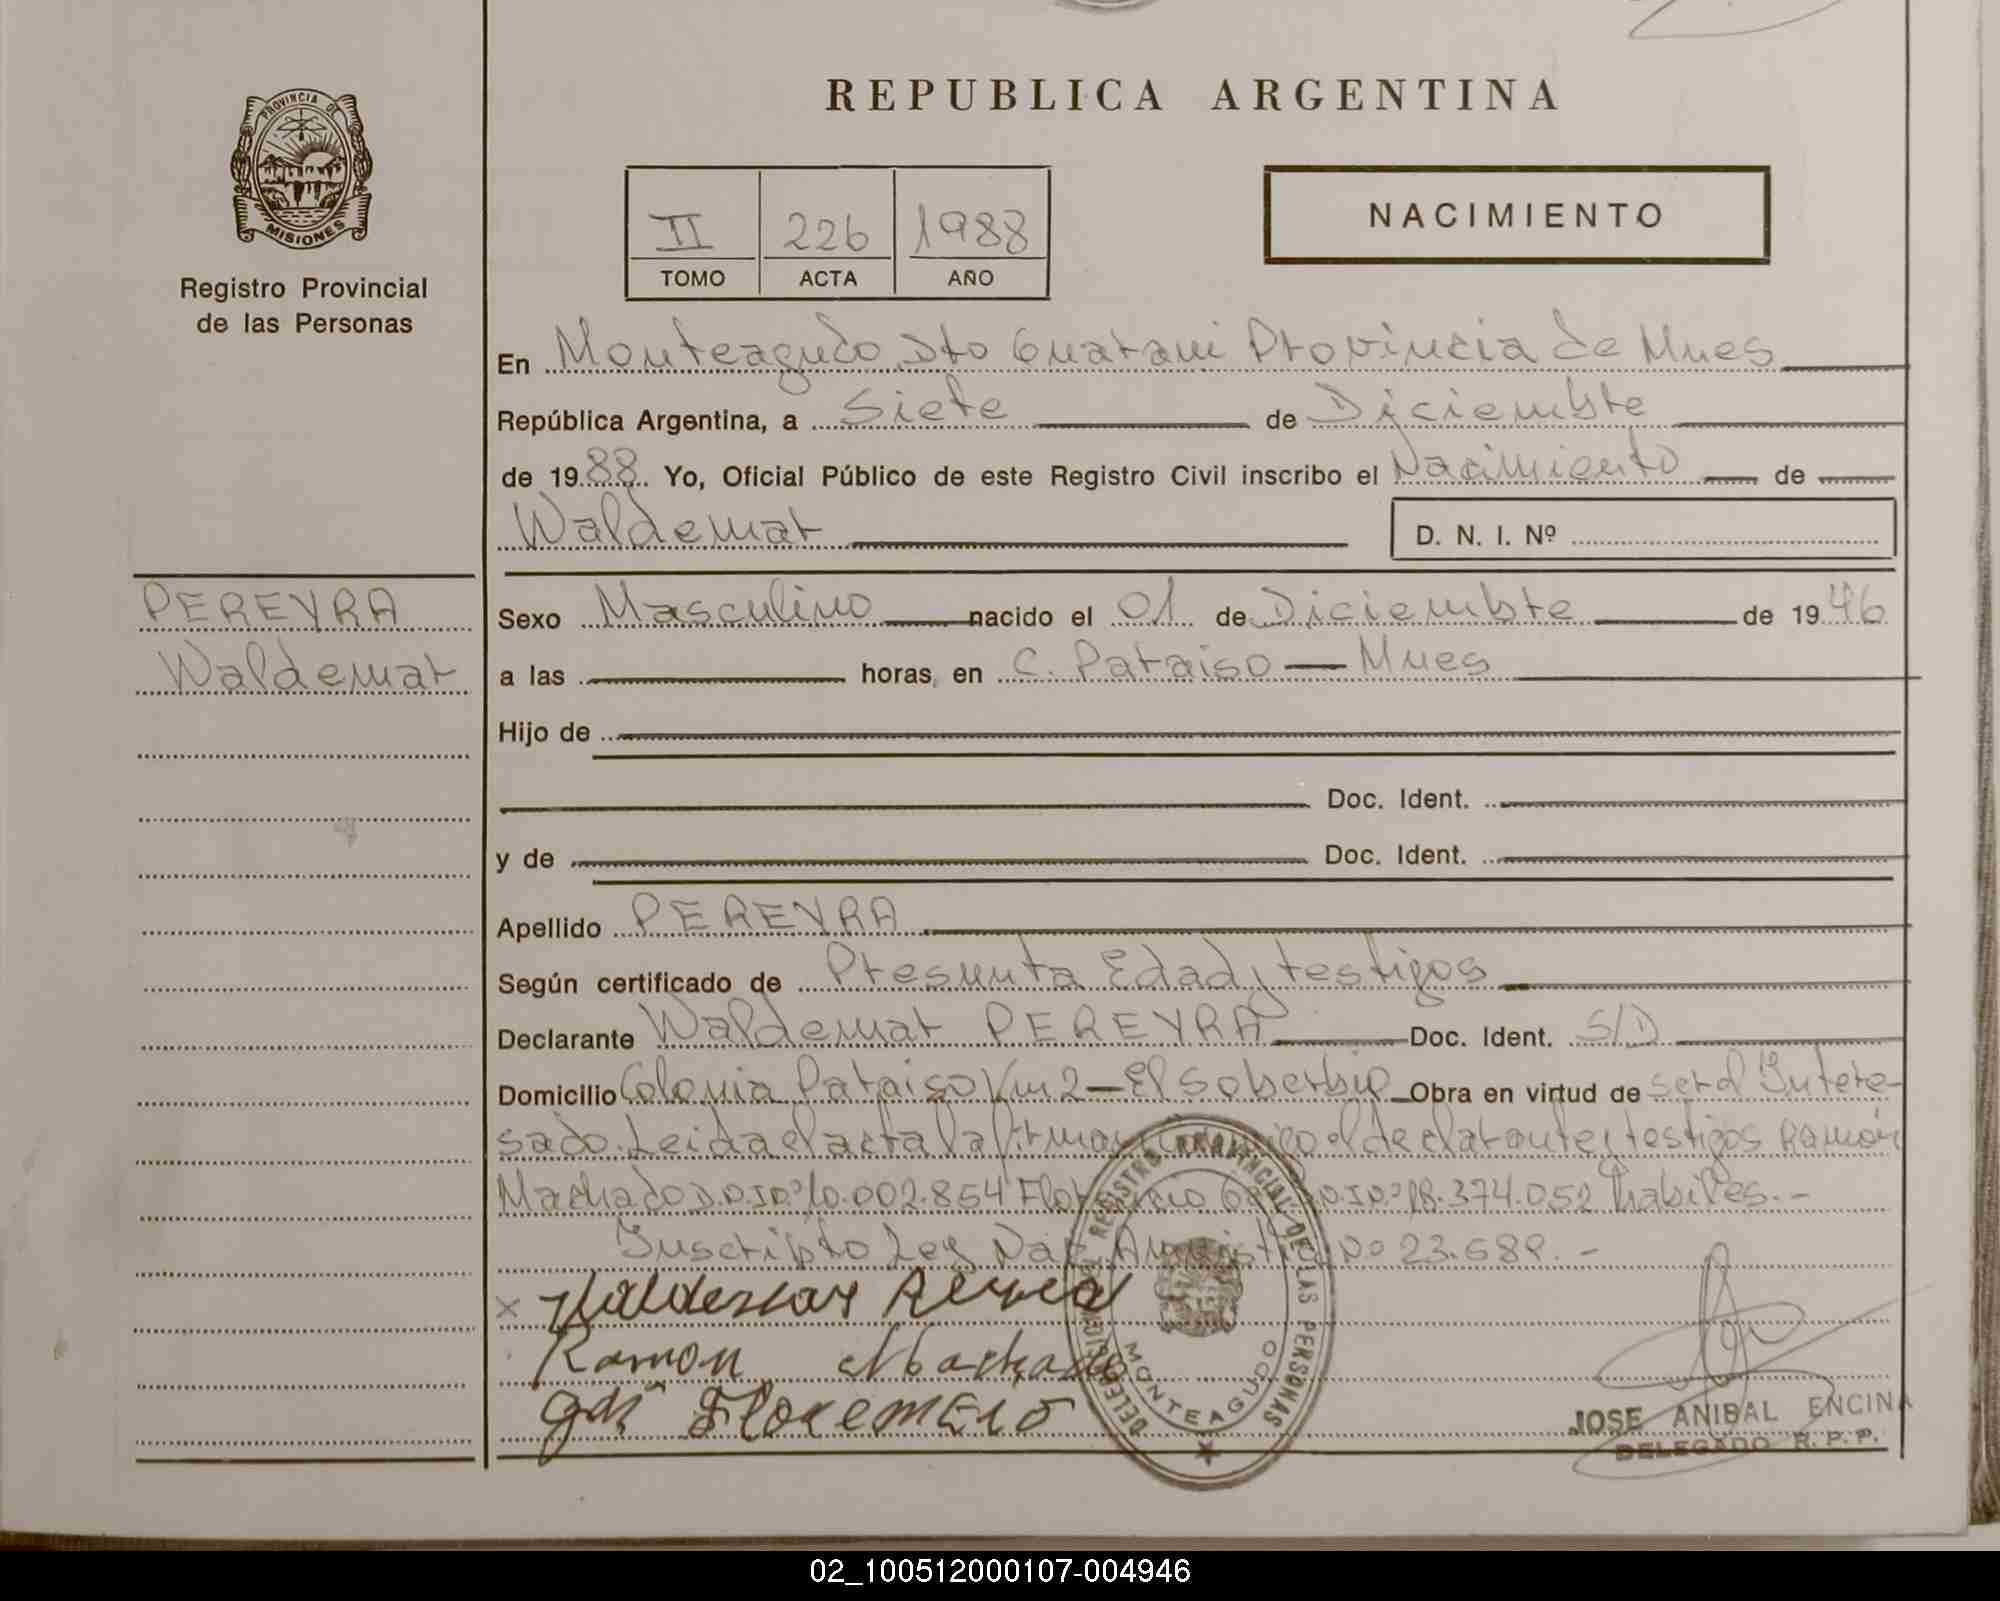 REPUBLICA ARGENTINA
PROVINCIA DE
MISIONES
Registro Provincial
de las Personas
II 226 1988
TOMO ACTA AÑO
NACIMIENTO
En Monteagudo, Dto Guarani Provincia de Mnes
República Argentina, a Siete de Diciembre
de 1988. Yo, Oficial Público de este Registro Civil inscribo el Nacimiento de
Waldemar D. N. I. Nº
PEREYRA
Waldemar
Sexo Masculino nacido el 01 de Diciembre de 1946
a las horas, en C. Paraiso — Mnes
Hijo de
Doc. Ident.
y de Doc. Ident.
Apellido PEREYRA
Según certificado de Presunta Edad y testigos
Declarante Waldemar PEREYRA Doc. Ident. S/D
Domicilio Colonia Paraiso Km 2 — El Soberbio Obra en virtud de ser el Intere-
sado. Leida el acta la firman el declarante y testigos Ramón
Machado D.N.I.Nº 10.002.854 18.374.052 habiles.-
Inscripto Ley Nac. Amnistia No
Waldemar Pereyra
Ramon Machado
Florencio
DELEGACION REGISTRO PROVINCIAL DE LAS PERSONAS
MONTEAGUDO
JOSE ANIBAL ENCINA
DELEGADO R. P. P.
02_100512000107-004946